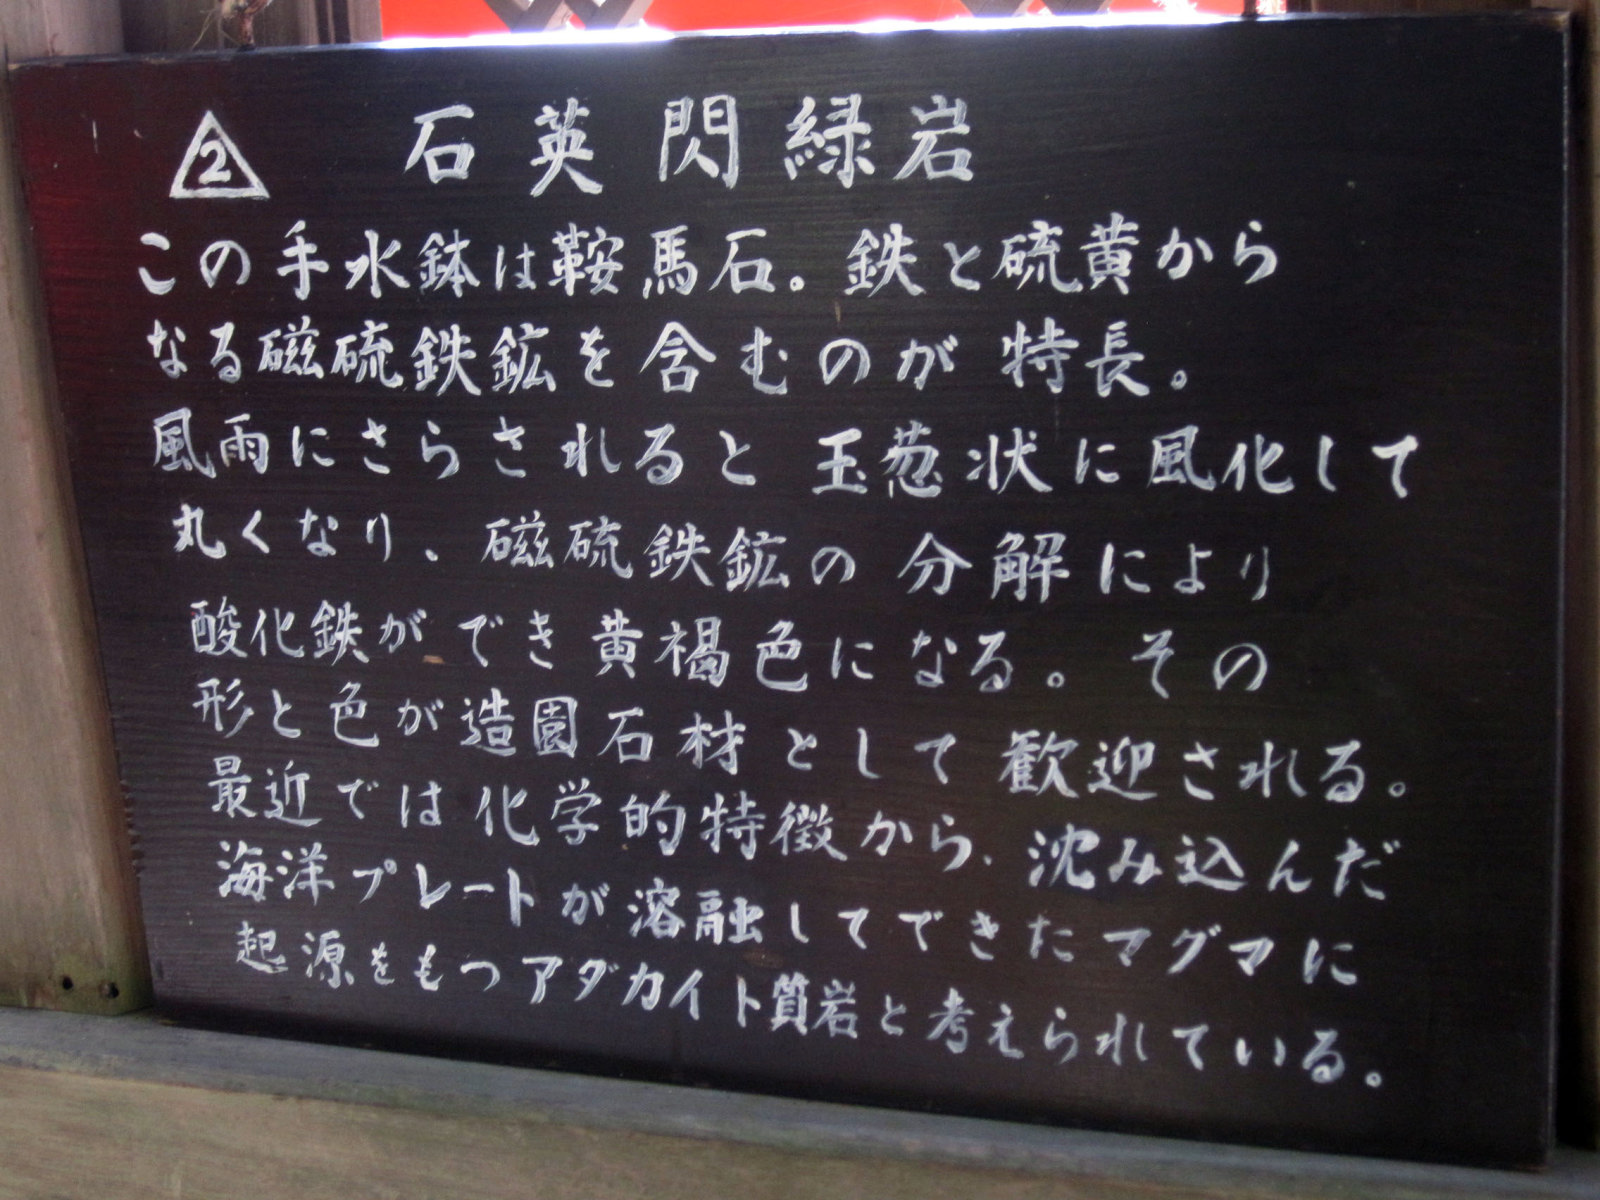 2 石英閃緑岩
この手水鉢は鞍馬石。鉄と硫黄から
なる磁硫鉄鉱を含むのが特長。
風雨にさらされると玉葱状に風化して
丸くなり、磁硫鉄鉱の分解により
酸化鉄ができ黄褐色になる。その
形と色が造園石材として歓迎される。
最近では化学的特徴から、沈み込んだ
海洋プレートが溶融してできたマグマに
起源をもつアダカイト質岩と考えられている。